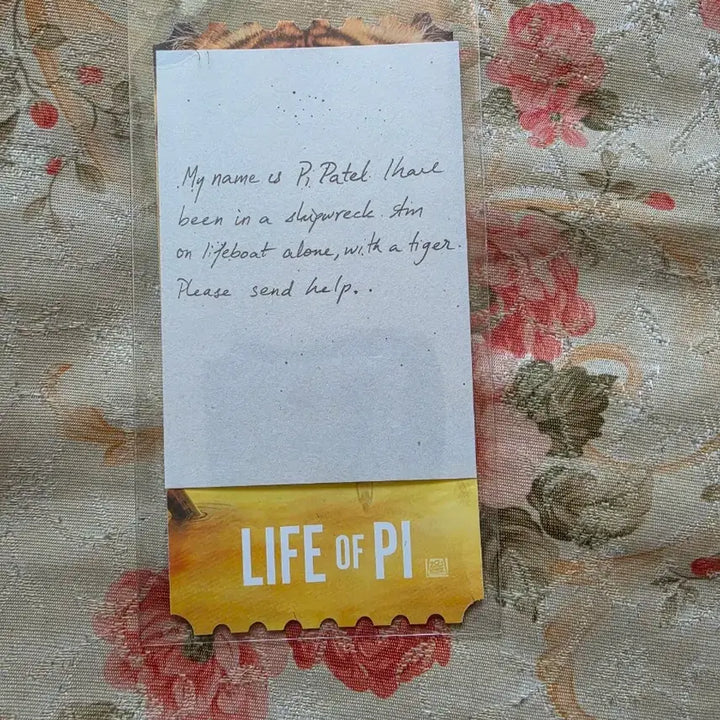 My name is Pi Patel. I have
been in a shipwreck. I'm
on lifeboat alone, with a tiger.
Please send help..
LIFE OF PI